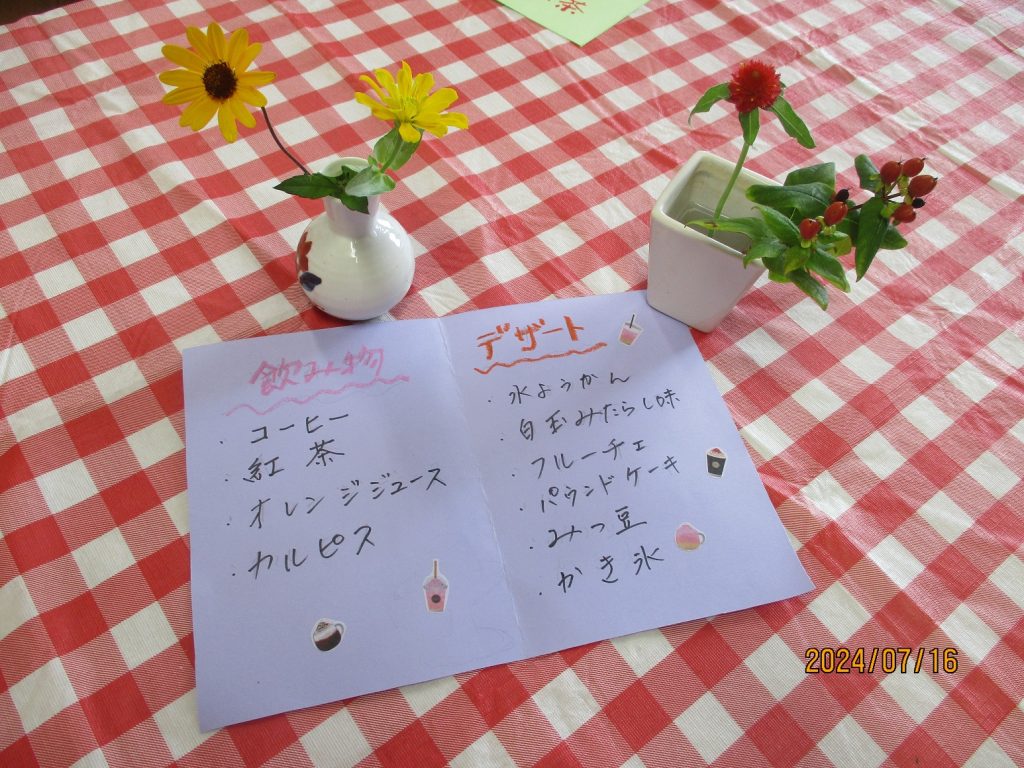 茶
飲み物
・コーヒー
・紅茶
・オレンジジュース
・カルピス
デザート
・水ようかん
・白玉みたらし味
・フルーチェ
・パウンドケーキ
・みつ豆
・かき氷
2024/07/16